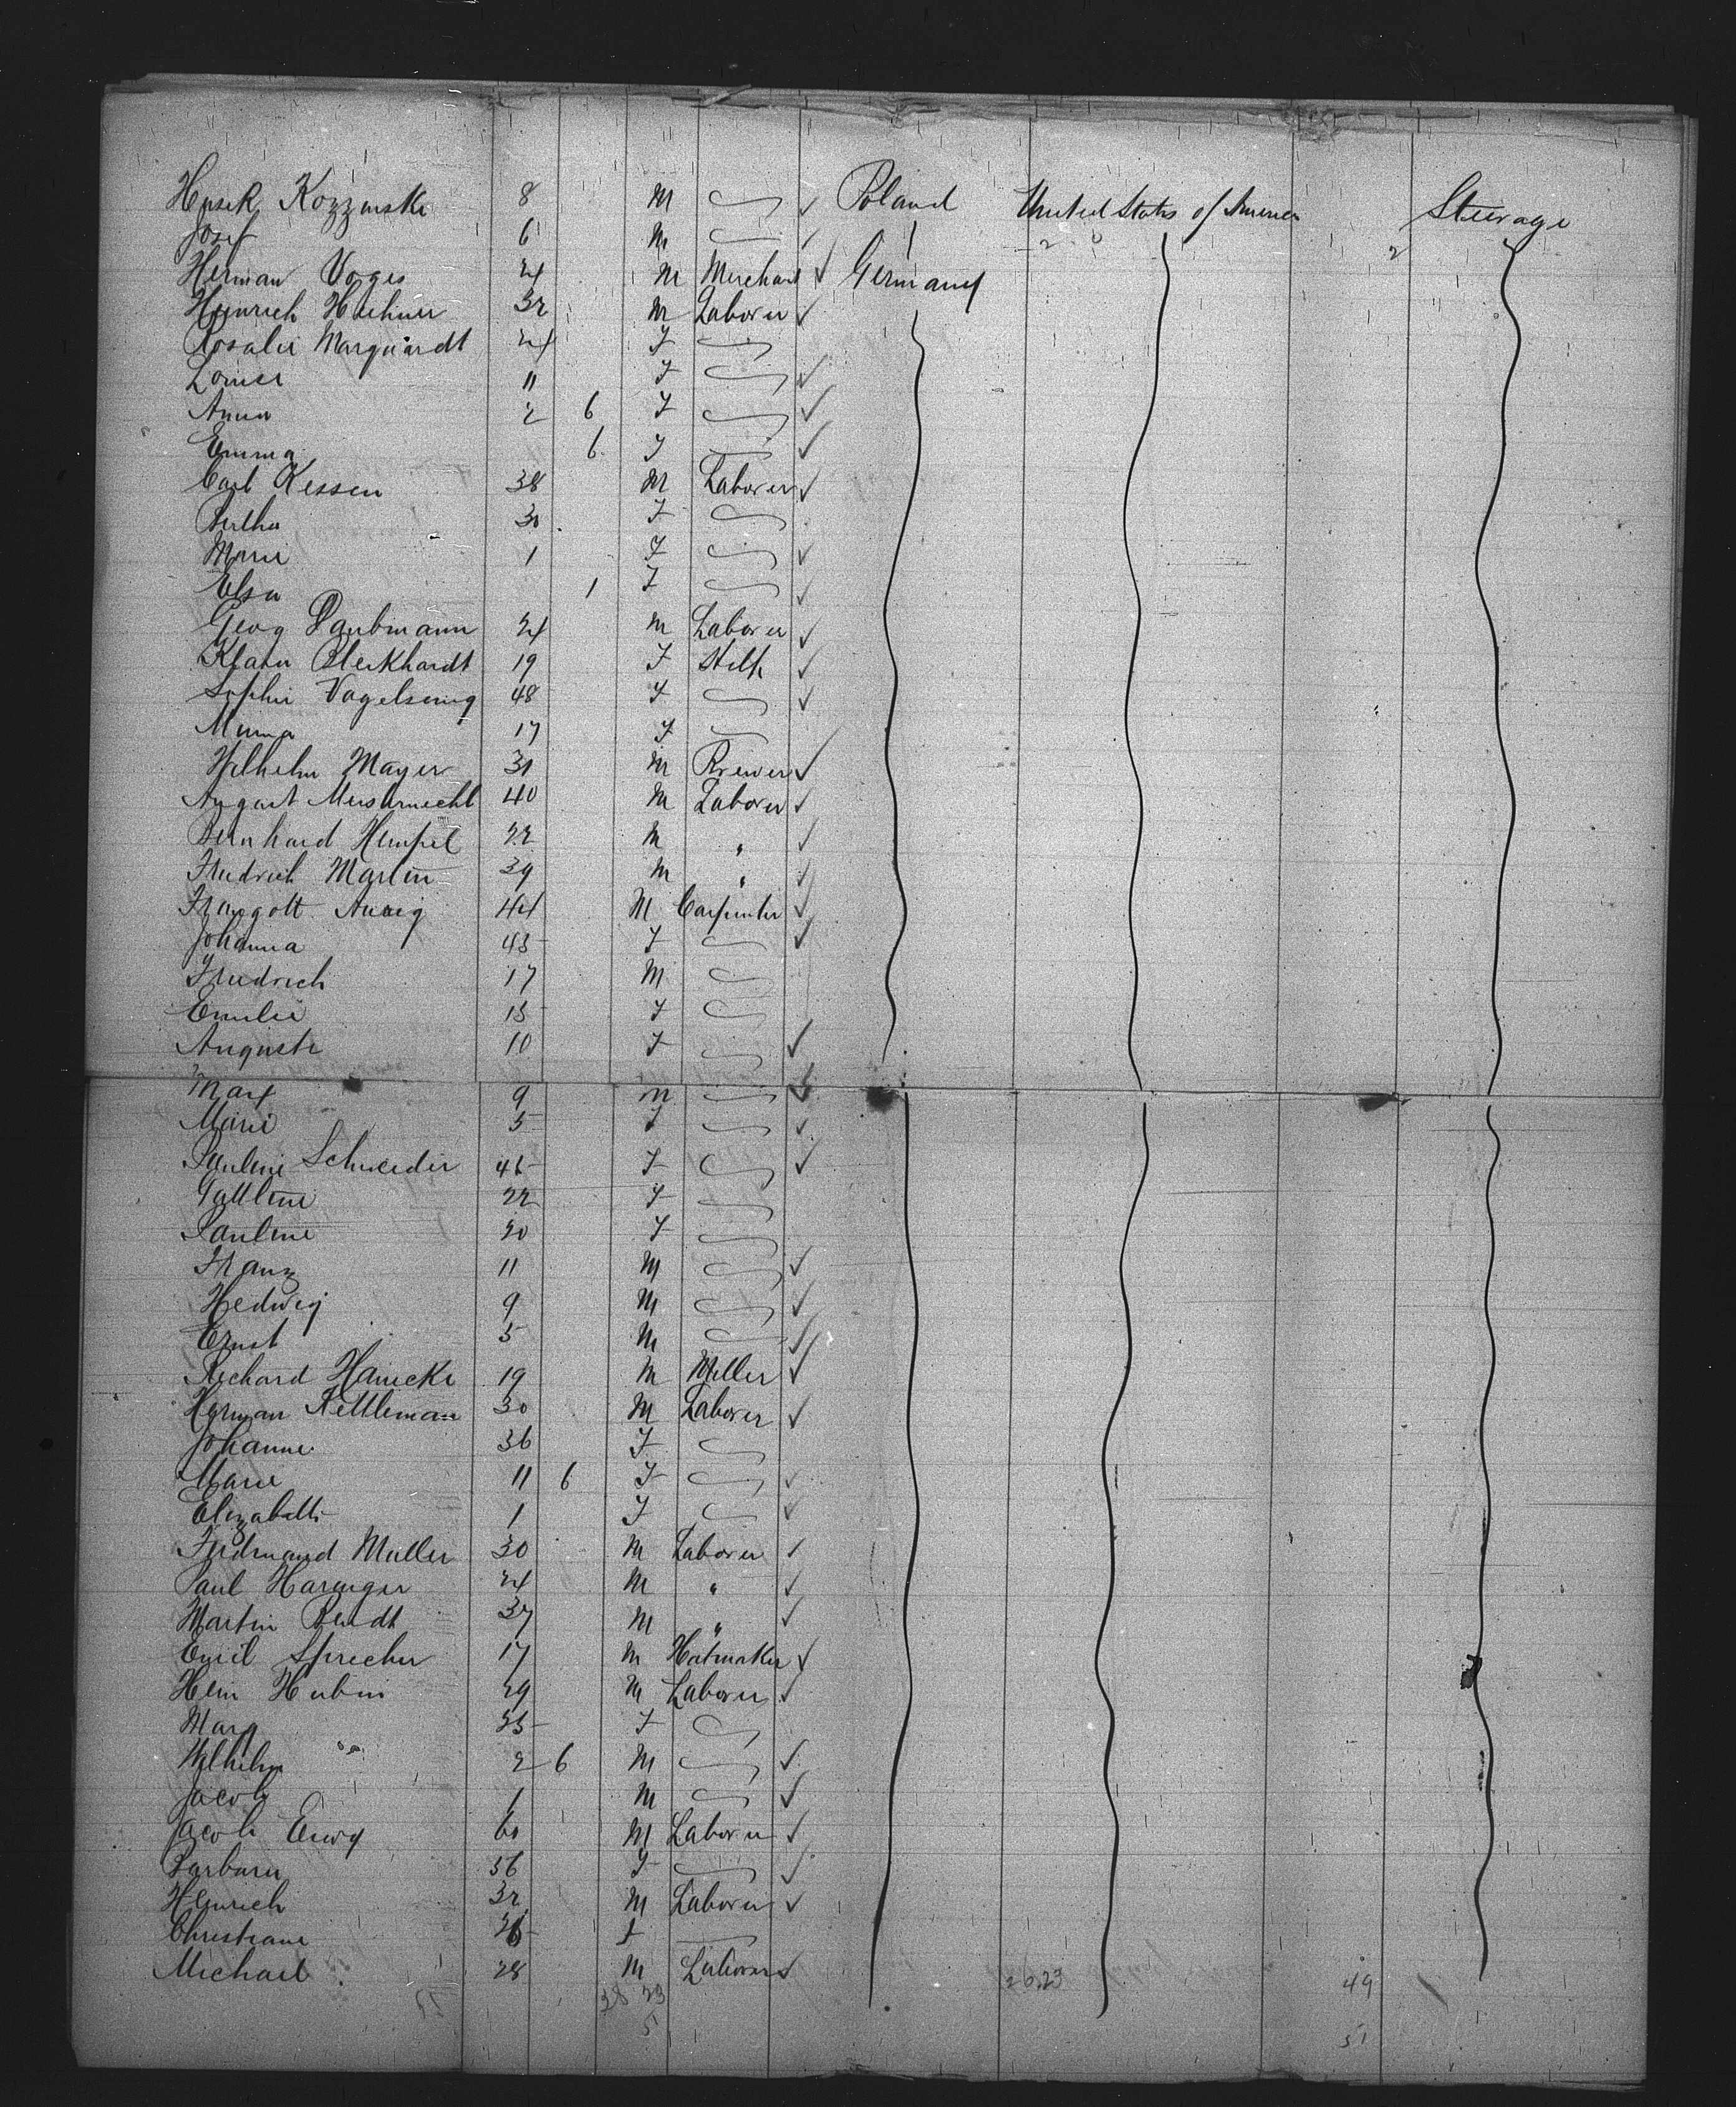 Kozzinski 8 M Poland United States of America Steerage
Josef 6 M 2 2
Herman Voges 24 M Merchant Germany
Heinrich 32 M Laborer
Rosalie Marquardt 24 F
Louise 11 F
Anna 2 6 F
Emma 6 F
Carl Kessen 38 M Laborer
Bertha 30 F
Marie 1 F
Elsa 1 F
Georg Daubmann 24 M Laborer
Klara 19 F
Sophie Vogelsang 48 F
Minna 17 F
Wilhelm Mayer 31 M Brewer
August 40 M Laborer
Bernhard Hempel 22 M "
Friedrich Martin 39 M "
Traugott 44 M Carpenter
Johanna 43 F
Friedrich 17 M
Emilie 15 F
Auguste 10 F
Max 9 M
Marie 5 F
Pauline Schneider 45 F
Gottline 22 F
Pauline 20 F
Franz 11 M
Hedwig 9 M
Ernst 5 M
Richard Hanicke 19 M Miller
Herman Kettleman 30 M Laborer
Johanne 36 F
Marie 11 6 F
Elizabeth 1 F
Ferdinand Muller 30 M Laborer
Paul 24 M "
Martin 37 M "
Emil Sprecher 17 M Hatmaker
Hein 29 M Laborer
Marg 25 F
Wilhelm 2 6 M
Jacob 1 M
Jacob 60 M Laborer
Barbara 56 F
Heinrich 32 M Laborer
Christiane F
Michael 28 M Laborer
28 23 26.23 49
5 51